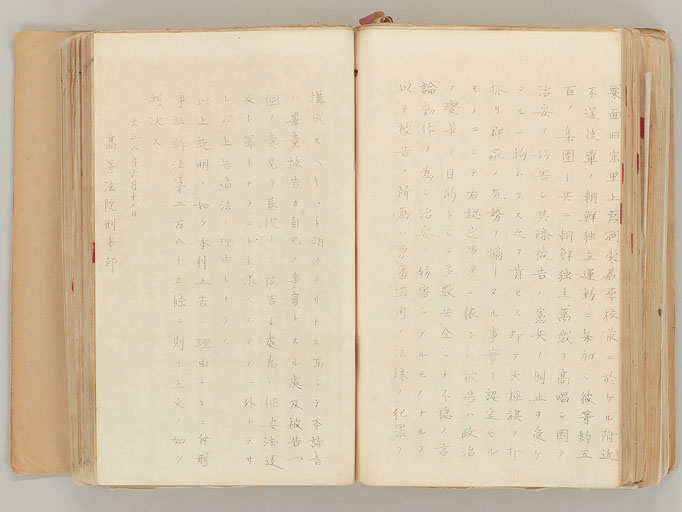 葉面旧宗里上 洞 嘉学校前ニ於ケル附近
不逞徒輩ノ朝鮮独立運動ニ参加シ彼等約五
百ノ集団ト共ニ朝鮮独立萬歳ヲ高唱シ因テ
治安ヲ妨害シ其際被告ハ憲兵ノ制止ヲ受ケ
タルニ拘ハラス之ヲ肯セス却テ太極旗ヲ打
振リ群衆ノ気勢ヲ煽リタル事実ヲ認定セル
モノニシテ右認定事実ニ依レハ被告ハ政治
ノ変革ヲ目的トシテ多数共仝シテ不穏ノ言
論動作ヲ為シ治安ヲ妨害シタルモノナルヲ
以テ被告ノ所為ハ原審適用ノ法條ノ犯罪ヲ
構成スヘキコト明カナリトス而シテ本論旨
ハ畢竟被告カ自己ノ事実トスル處及被告一
個ノ意見ヲ基礎トシ被告ノ處為ハ保安法違
反ト罪トナラスト主張スルモノニ外ナラサ
レハ上告適法ノ理由トナラス
以上説明ノ如ク本件上告ハ理由ナキニ付刑
事訴訟法第二百八十五條ニ則リ主文ノ如ク
判決ス
大正八年六月十二日
高等法院刑事部